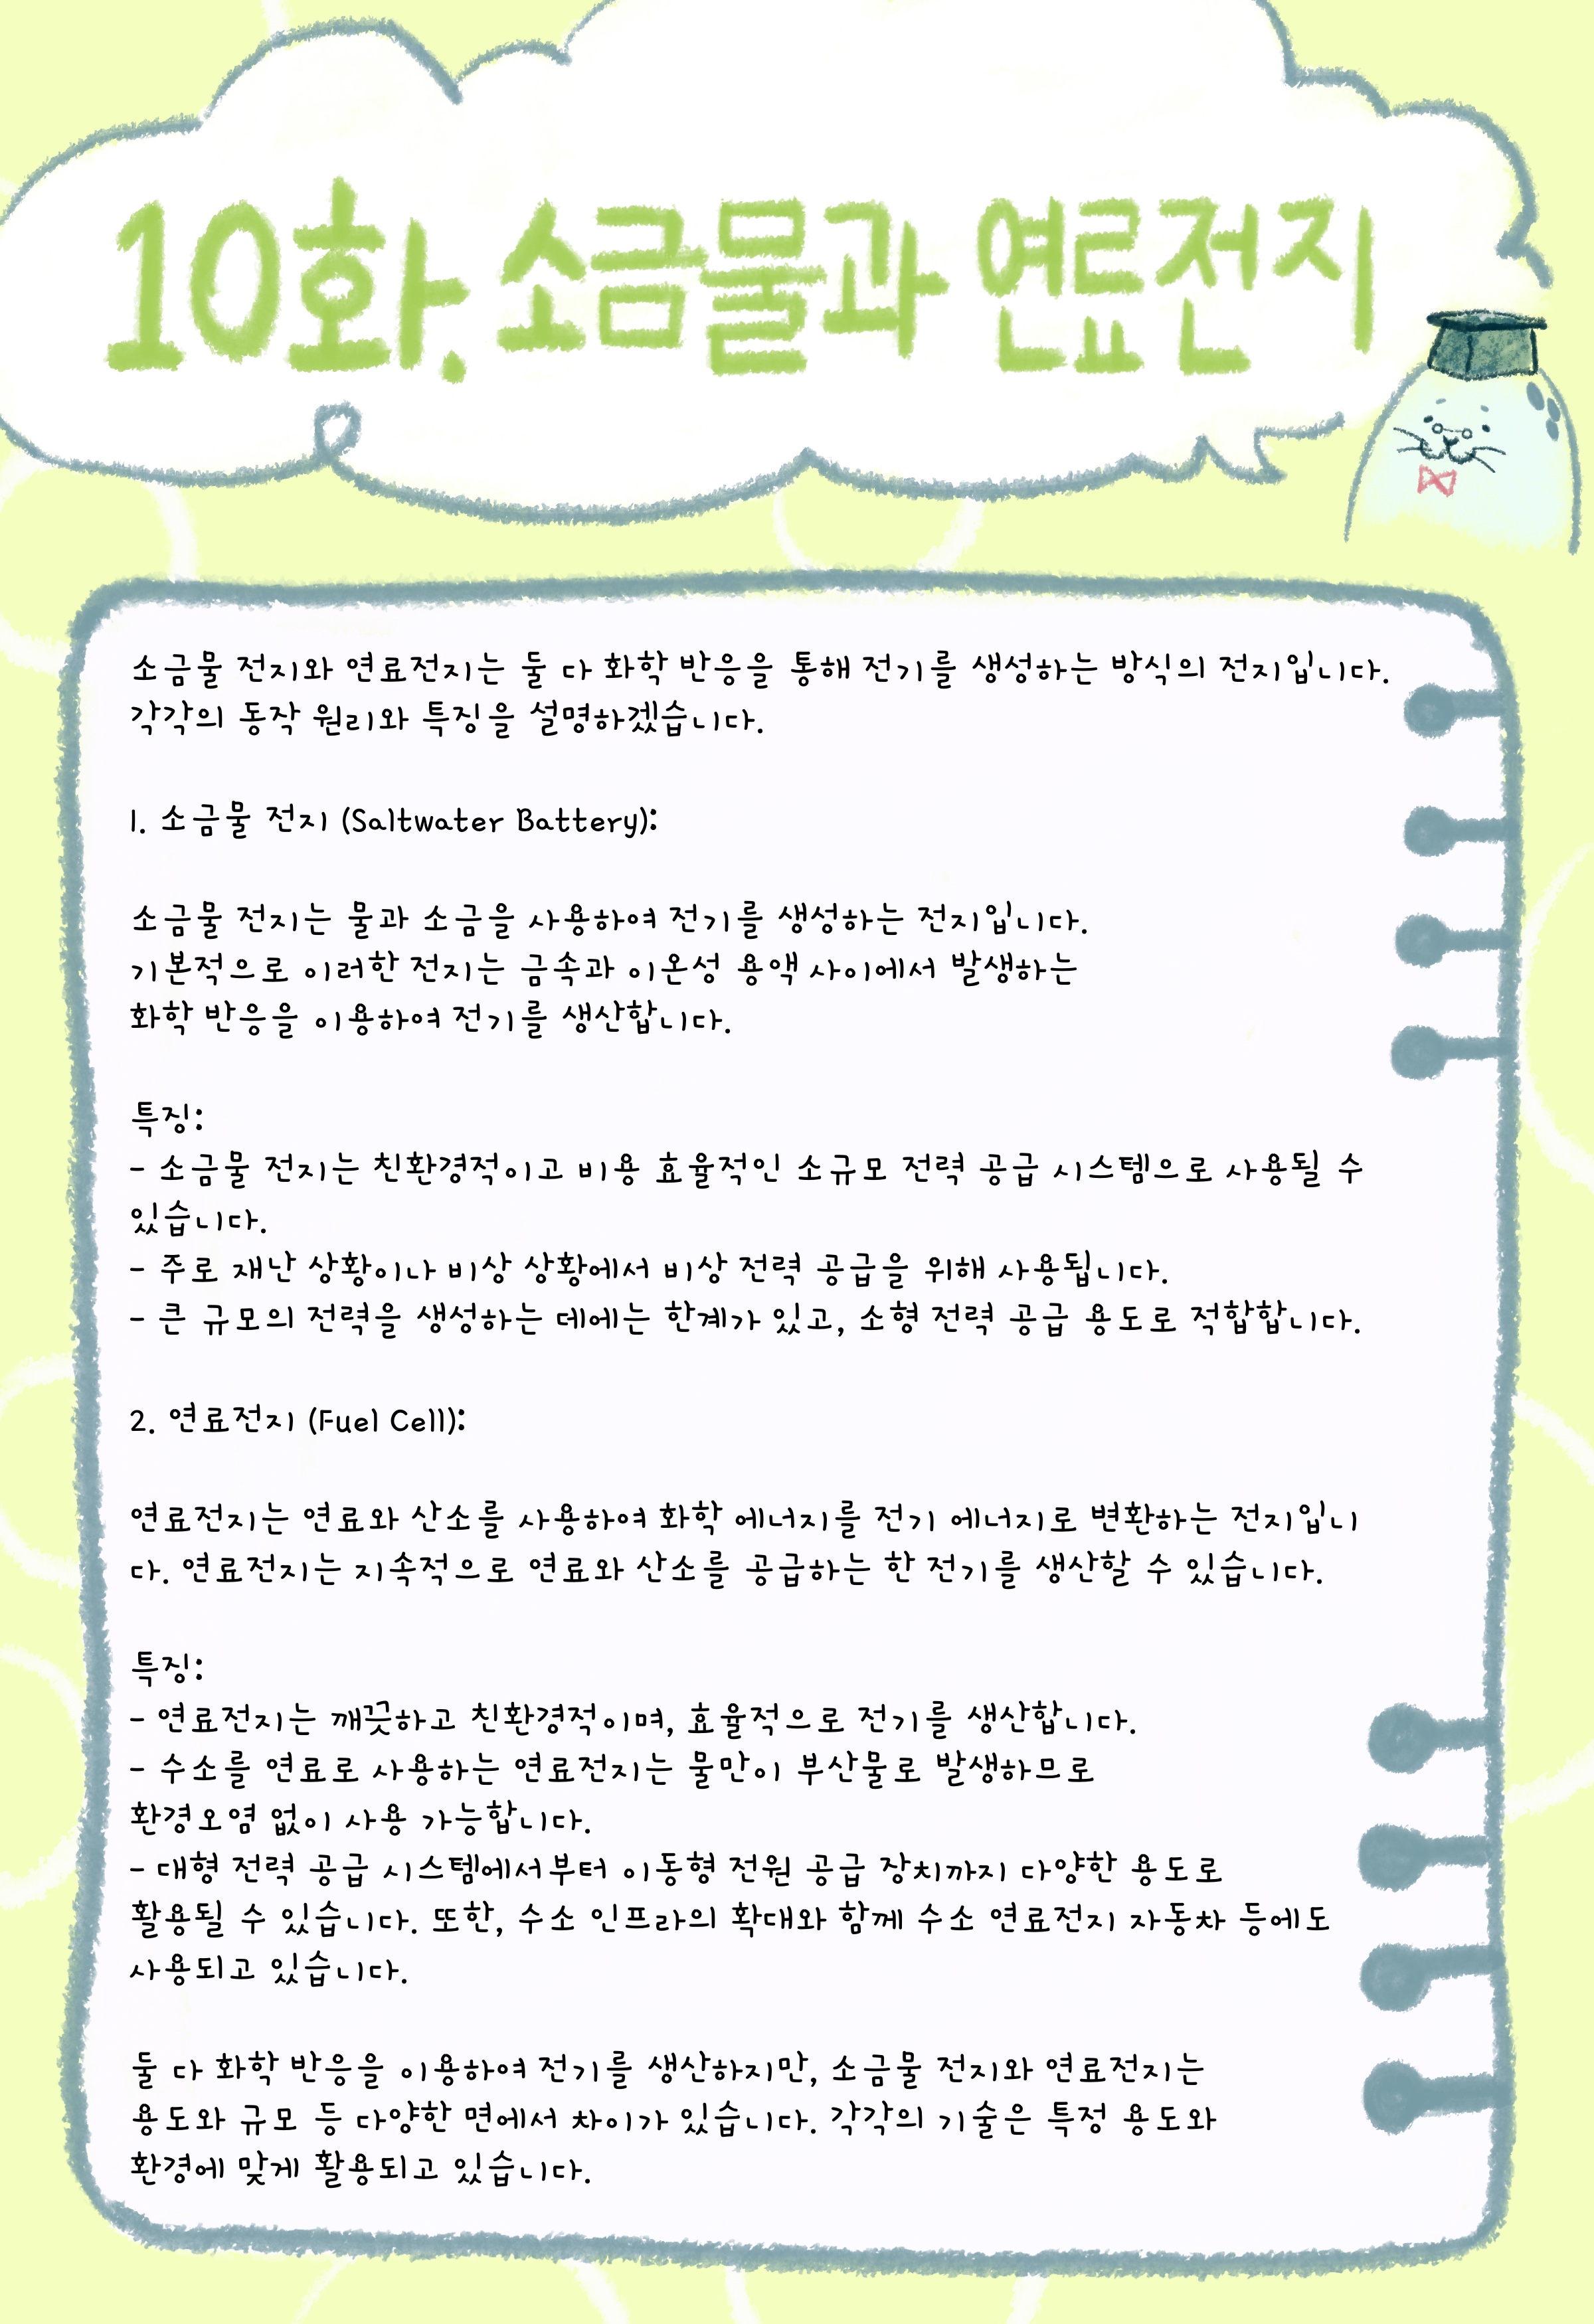 10화. 소금물과 연료전지
소금물 전지와 연료전지는 둘 다 화학 반응을 통해 전기를 생성하는 방식의 전지입니다.
각각의 동작 원리와 특징을 설명하겠습니다.
1. 소금물 전지 (Saltwater Battery):
소금물 전지는 물과 소금을 사용하여 전기를 생성하는 전지입니다.
기본적으로 이러한 전지는 금속과 이온성 용액 사이에서 발생하는
화학 반응을 이용하여 전기를 생산합니다.
특징:
- 소금물 전지는 친환경적이고 비용 효율적인 소규모 전력 공급 시스템으로 사용될 수
있습니다.
- 주로 재난 상황이나 비상 상황에서 비상 전력 공급을 위해 사용됩니다.
- 큰 규모의 전력을 생성하는 데에는 한계가 있고, 소형 전력 공급 용도로 적합합니다.
2. 연료전지 (Fuel Cell):
연료전지는 연료와 산소를 사용하여 화학 에너지를 전기 에너지로 변환하는 전지입니
다. 연료전지는 지속적으로 연료와 산소를 공급하는 한 전기를 생산할 수 있습니다.
특징:
- 연료전지는 깨끗하고 친환경적이며, 효율적으로 전기를 생산합니다.
- 수소를 연료로 사용하는 연료전지는 물만이 부산물로 발생하므로
환경오염 없이 사용 가능합니다.
- 대형 전력 공급 시스템에서부터 이동형 전원 공급 장치까지 다양한 용도로
활용될 수 있습니다. 또한, 수소 인프라의 확대와 함께 수소 연료전지 자동차 등에도
사용되고 있습니다.
둘 다 화학 반응을 이용하여 전기를 생산하지만, 소금물 전지와 연료전지는
용도와 규모 등 다양한 면에서 차이가 있습니다. 각각의 기술은 특정 용도와
환경에 맞게 활용되고 있습니다.